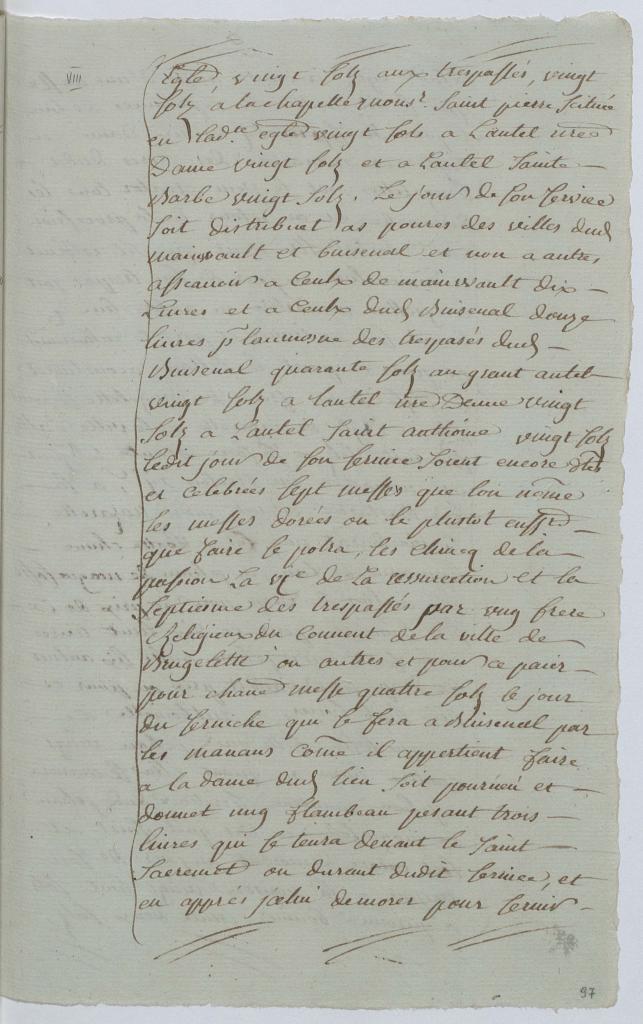 VIII
Egle vingt solz aux trespassés, vingt
solz, a la chapelle monsr. Saint pierre scituée
en lad.te eglē vingt sols a L'autel nrē
Dame vingt solz et a L'autel Sainte
Barbe vingt solz. Le jour de son service
soit distribuet as poures des villes dud
mainvault et buisenal et non a autres
assçauoir a Ceulx de mainvault dix
Liures et a Ceulx dud Buisenal douze
liures pr laumosne des trespasés dud
Buisenal quarante solz au grant autel
vingt solz a lautel nrē Dame vingt
solz a L'autel saint anthoine vingt solz
ledit jour de son seruice soient encore dites
et celebrées sept messes que lon nōme
les messes dorées ou le plustot ensst
que faire le polra, les chincq de la
passion La vie de La resurrection et la
septiesme des trespassés par ung frere
Religieux du Conuent de la ville de
Brugelette ou autres et pour ce paier
pour chacūe messe quattre solz le jour
du seruiche qui se fera a Buisenal par
les manans Cōme il appertient faire
a la dame dud lieu soit pourueu et
donnet ung flambeau pesant trois
liures qui se tenra deuant le saint
Sacremēt ou durant dudit seruice, et
en apprés jcelui demorer pour seruir
97